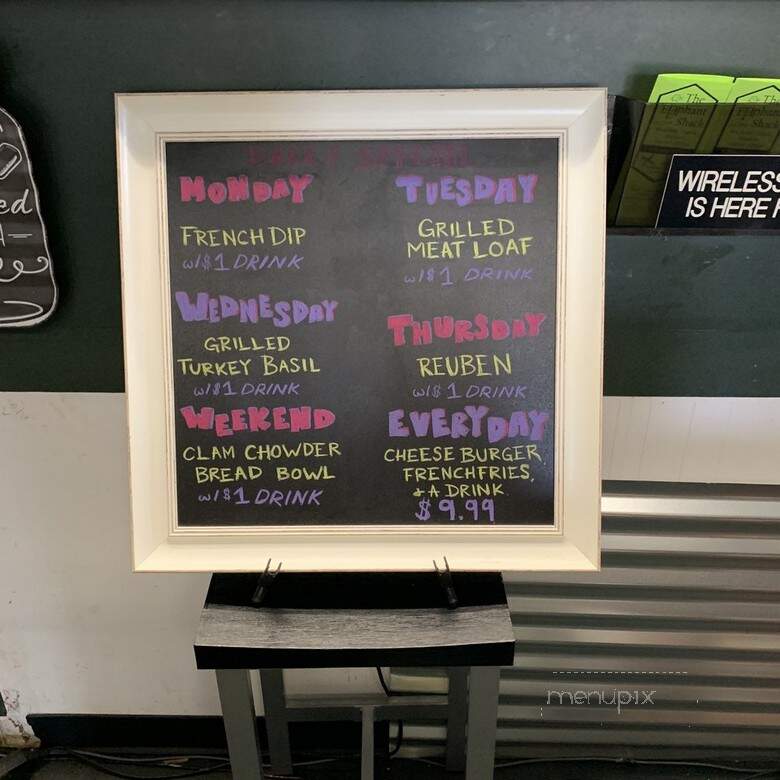 DAILY SPECIAL
MONDAY
FRENCH DIP
w/$1 DRINK
TUESDAY
GRILLED
MEAT LOAF
w/$1 DRINK
WEDNESDAY
GRILLED
TURKEY BASIL
w/$1 DRINK
THURSDAY
REUBEN
w/$ 1 DRINK
WEEKEND
CLAM CHOWDER
BREAD BOWL
w/$1 DRINK
EVERYDAY
CHEESE BURGER
FRENCHFRIES,
+ A DRINK
$9.99
ed
The
Elephant
Shack
WIRELESS
IS HERE
menupix